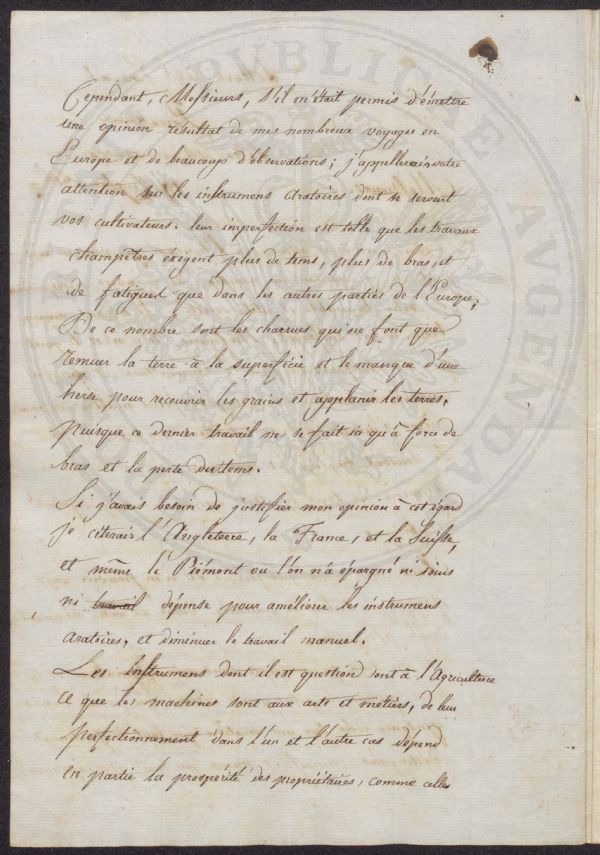 Cependant, Messieurs, s'il m'était permis d'émettre
une opinion résultat de mes nombreux voyages en
Europe et de beaucoup d'observations; j'appellerais votre
attention sur les instrumens aratoires dont se servent
vos cultivateurs. leur imperfection est telle que les travaux
champêtres éxigent plus de tems, plus de bras, et
de fatigues que dans les autres parties de l'Europe;
De ce nombre sont les charrues qui ne font que
remuer la terre à la superficie et le manque d'une
herse pour recouvrir les grains et applanir les terres,
puisque ce dernier travail ne se fait ici qu'à force de
bras et la perte du tems.
Si j'avais besoin de justifier mon opinion à cet égard
je citerais l'Angleterre, la France, et la Suisse,
et même le Piémont ou l'on n'a épargné ni soins
ni travail dépense pour améliorer les instrumens
aratoires, et diminuer le travail manuel.
Les Instrumens dont il est question sont à l'Agriculture
ce que les machines sont aux arts et métiers, de leur
perfectionnement dans l'un et l'autre cas dépend
en partie la prosperité des propriétaires, comme celles
PUBLICAE AVGENDAE